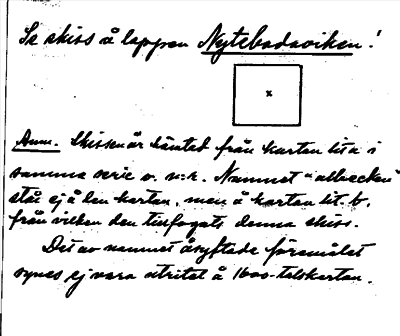 Se skiss å lappen Nytebodaviken!
x
Anm. Skissen är hämtad från kartan lit a i
samma serie o. n:r. Namnet "albacken"
står ej å den kartan, men å kartan lit. b,
från vilken den tillfogats denna skiss.
Det av namnet åsyftade föremålet
synes ej vara utritat å 1600-talskartan.